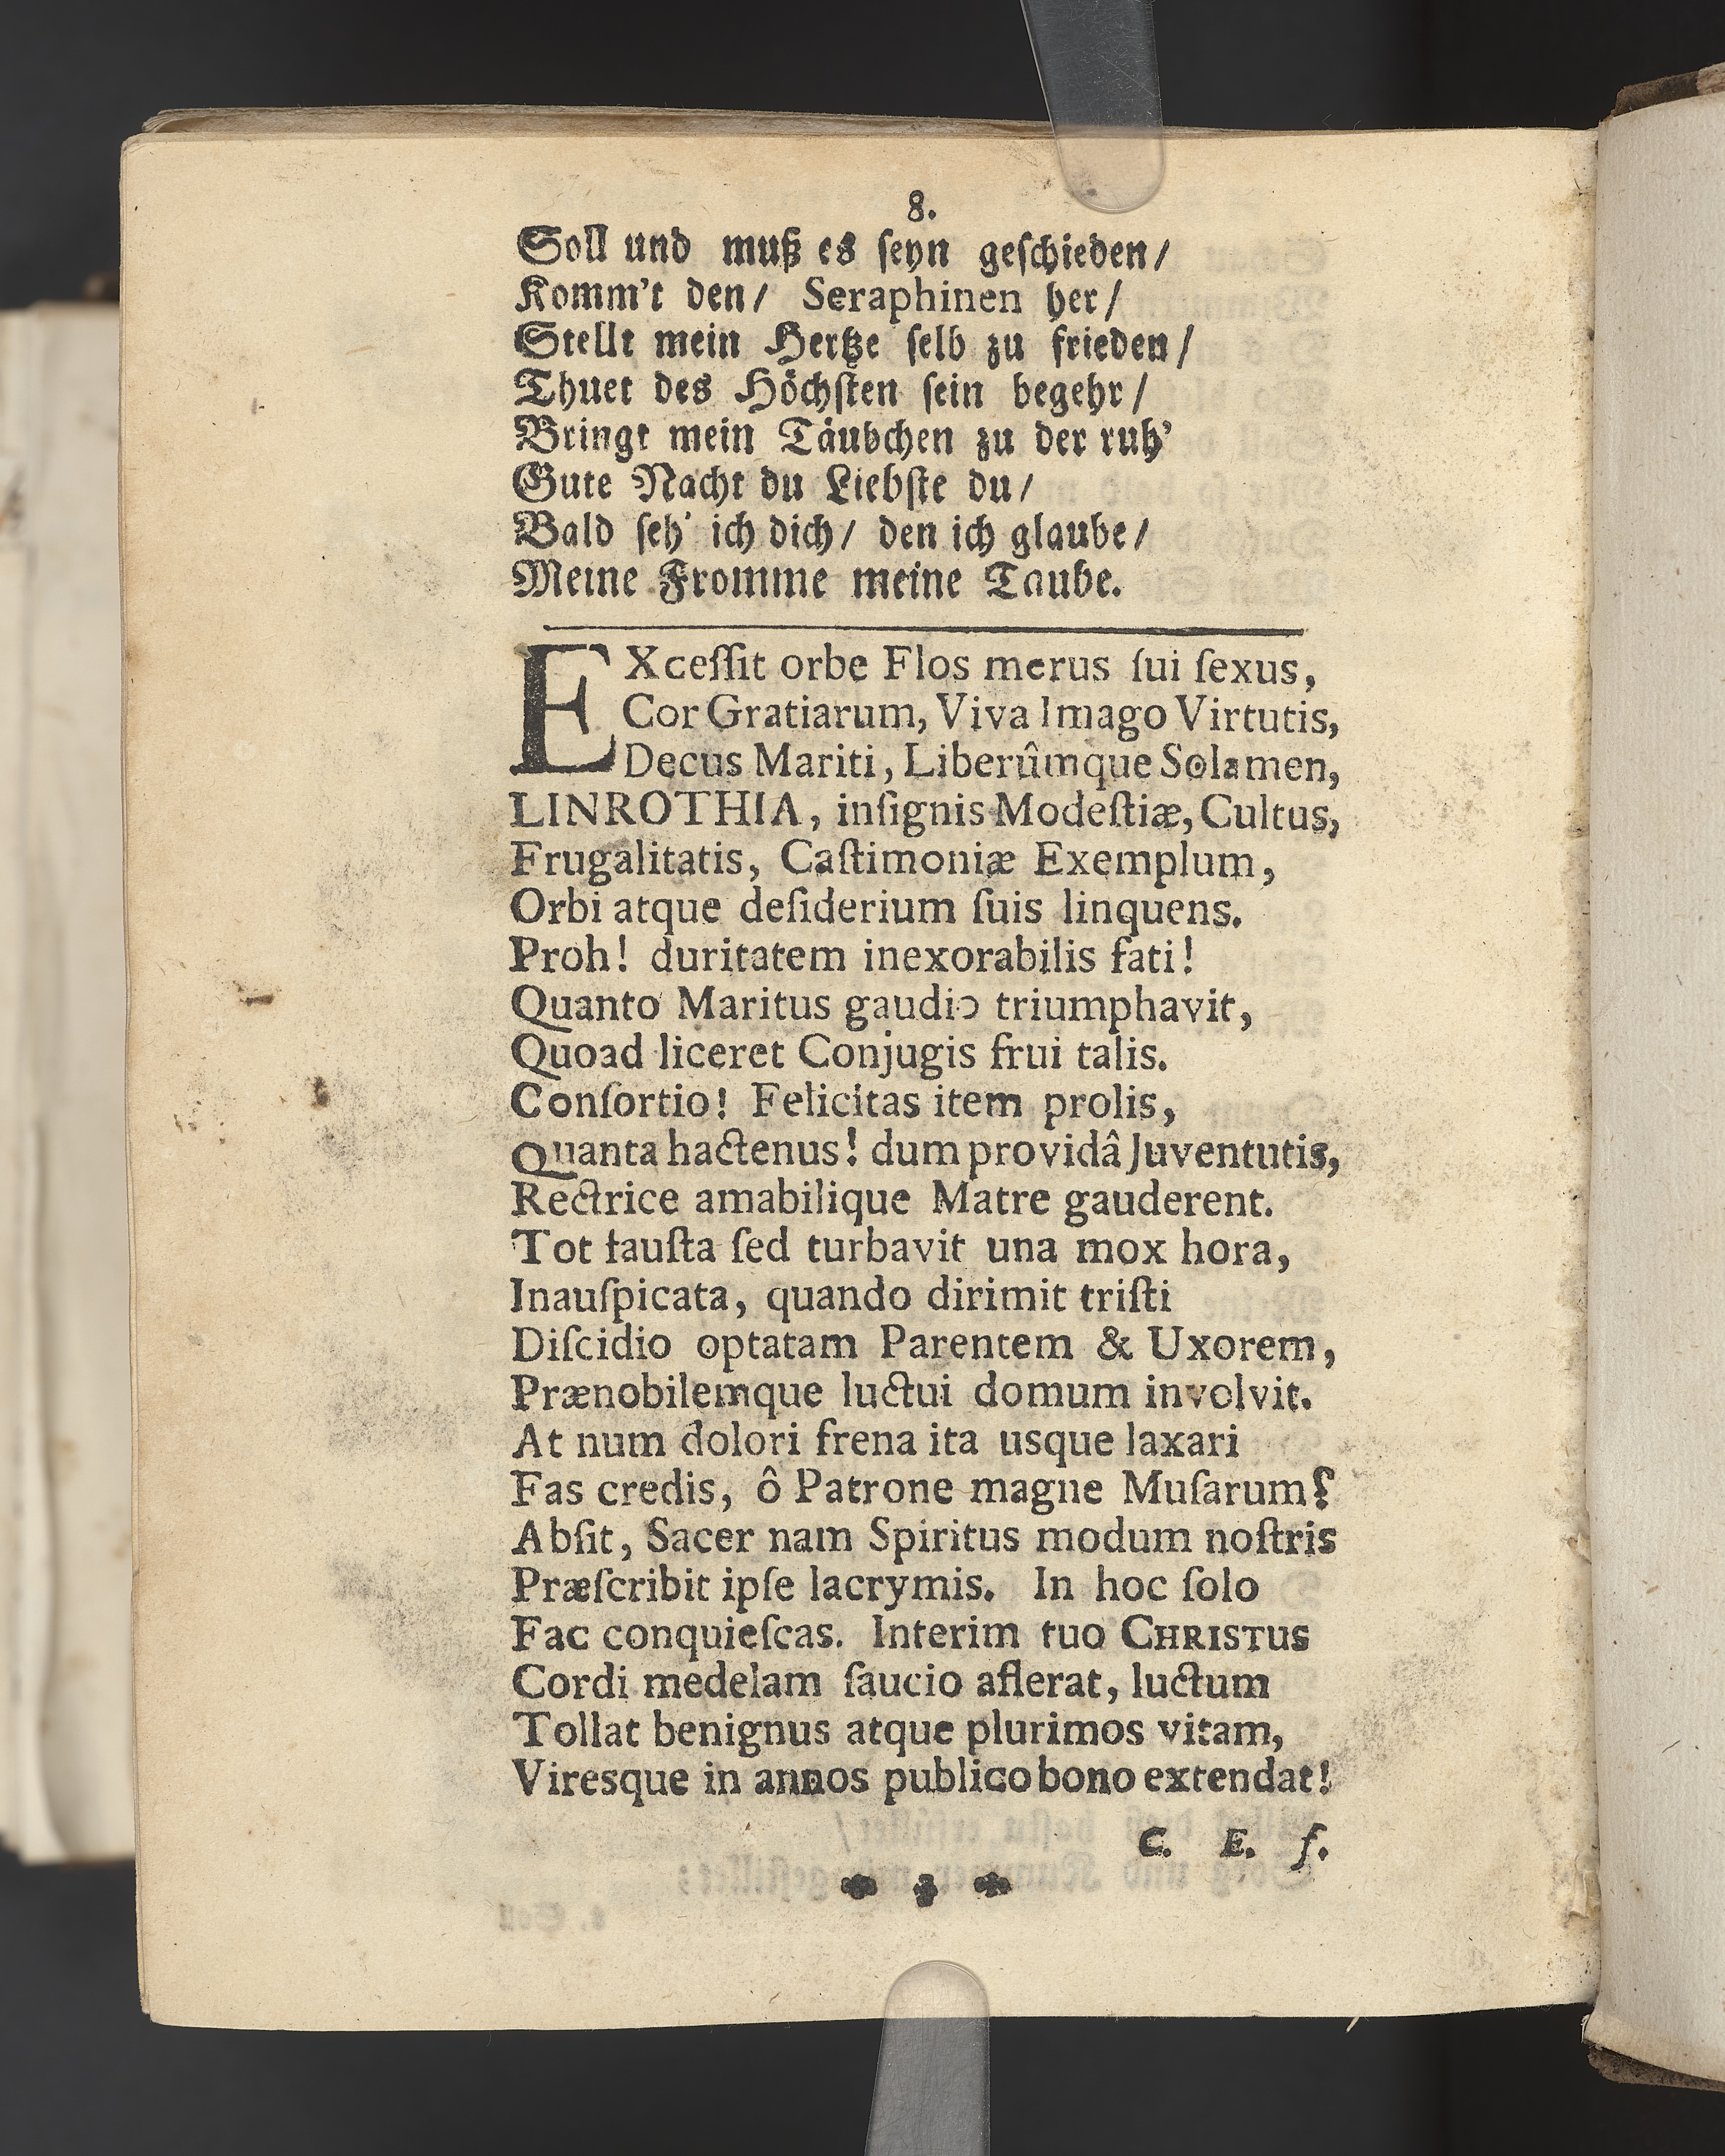 8.
Soll und muß es ſeyn geſchieden/
Komm't den/ Seraphinen her/
Stellt mein Hertze ſelb zu frieden/
Thuet des Höchſten ſein begehr/
Bringt mein Täubchen zu der ruh'
Gute Nacht du Liebſte du/
Bald ſeh' ich dich/ den ich glaube/
Meine Fromme meine Taube.
EXceſſit orbe Flos merus ſui ſexus,
Cor Gratiarum, Viva Imago Virtutis,
Decus Mariti, Liberûmque Solamen,
LINROTHIA, inſignis Modeſtiæ, Cultus,
Frugalitatis, Caſtimoniæ Exemplum,
Orbi atque deſiderium ſuis linquens.
Proh! duritatem inexorabilis fati!
Quanto Maritus gaudio triumphavit,
Quoad liceret Conjugis frui talis.
Conſortio! Felicitas item prolis,
Quanta hactenus! dum providâ Juventutis,
Rectrice amabilique Matre gauderent.
Tot fauſta ſed turbavit una mox hora,
Inauſpicata, quando dirimit triſti
Diſcidio optatam Parentem & Uxorem,
Prænobilemque luctui domum involvit.
At num dolori frena ita usque laxari
Fas credis, ô Patrone magne Muſarum?
Abſit, Sacer nam Spiritus modum noſtris
Præſcribit ipſe lacrymis. In hoc ſolo
Fac conquieſcas. Interim tuo CHRISTUS
Cordi medelam ſaucio afferat, luctum
Tollat benignus atque plurimos vitam,
Viresque in annos publico bono extendat!
C. E. ſ.